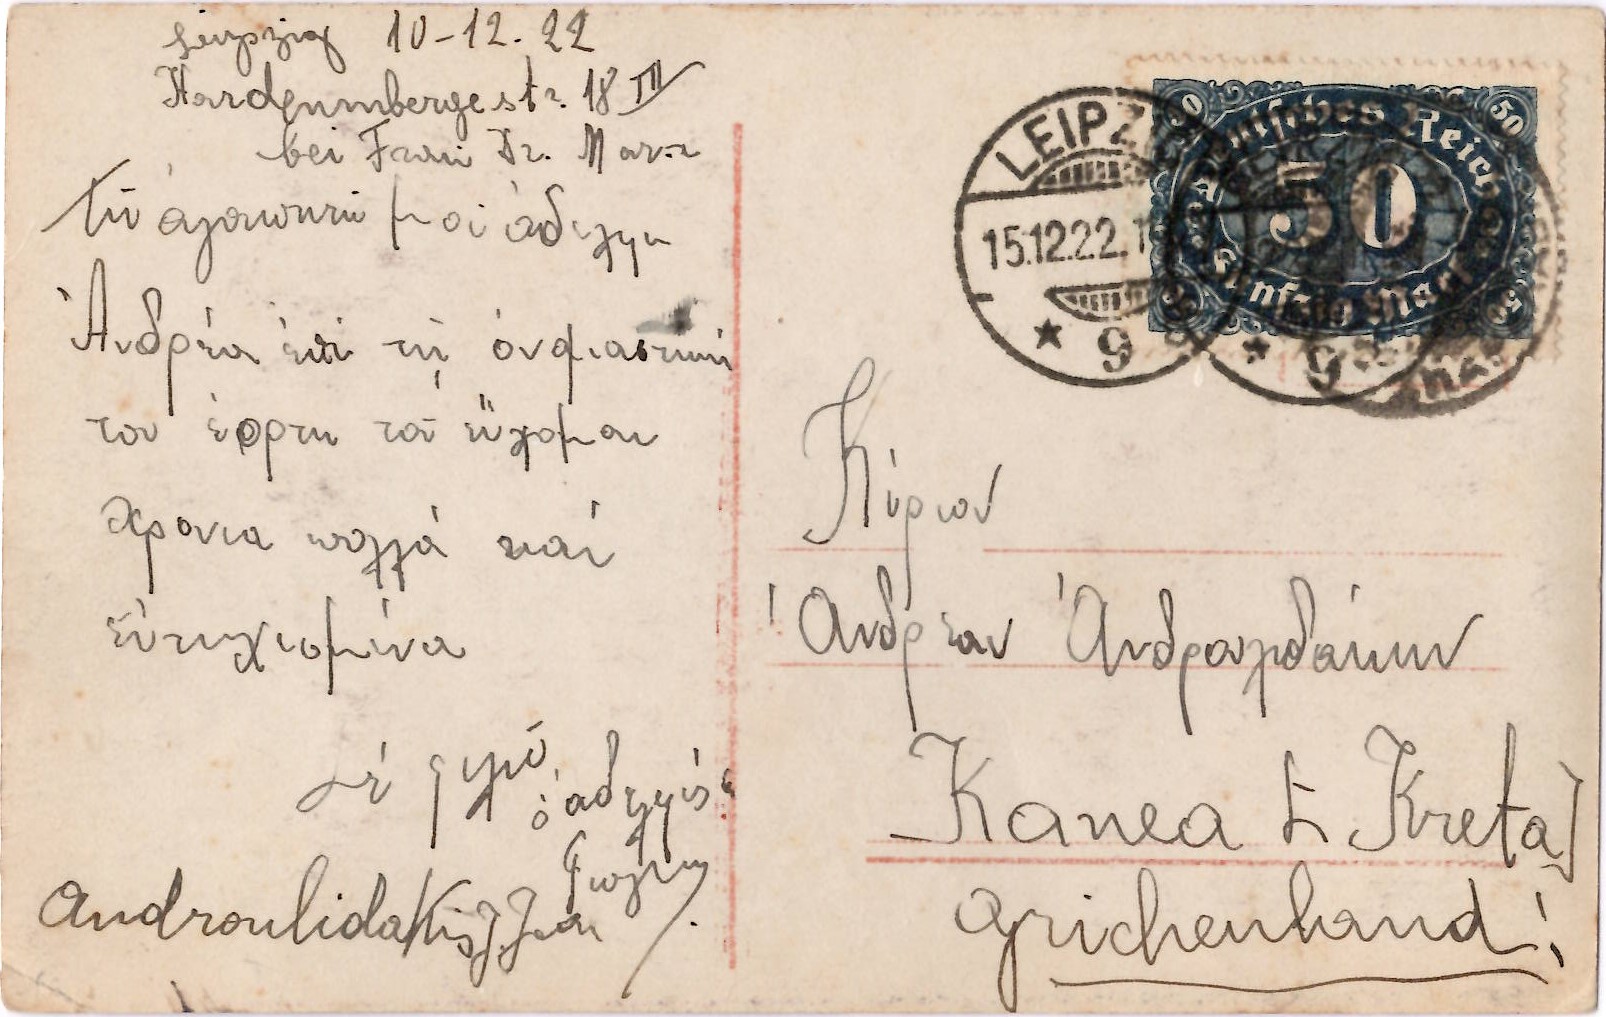 Leipzig 10-12.22
Hardennbergestr. 18 III
bei Frau Dr. Marx
Τῶ ἀγαπητῶ μοί ἀδελφῶ
Ἀνδρέα ἐπί τῆ ὀνομαστική
του ἑορτη τοῦ εὔχομαι
Χρονια πολλά καί
εὐτυχισμένα
Σέ φιλῶ
ὁ ἀδελφός
Γιάγκος
Androulidakis J. Jean
LEIPZIG
15.12.22.
* 9
Deutsches Reich
50
Fünfzig Mark
* 9
Κύριον
Ἀνδρέαν Ἀνδρουλιδάκην
Kanea [Kreta]
Grichenland!